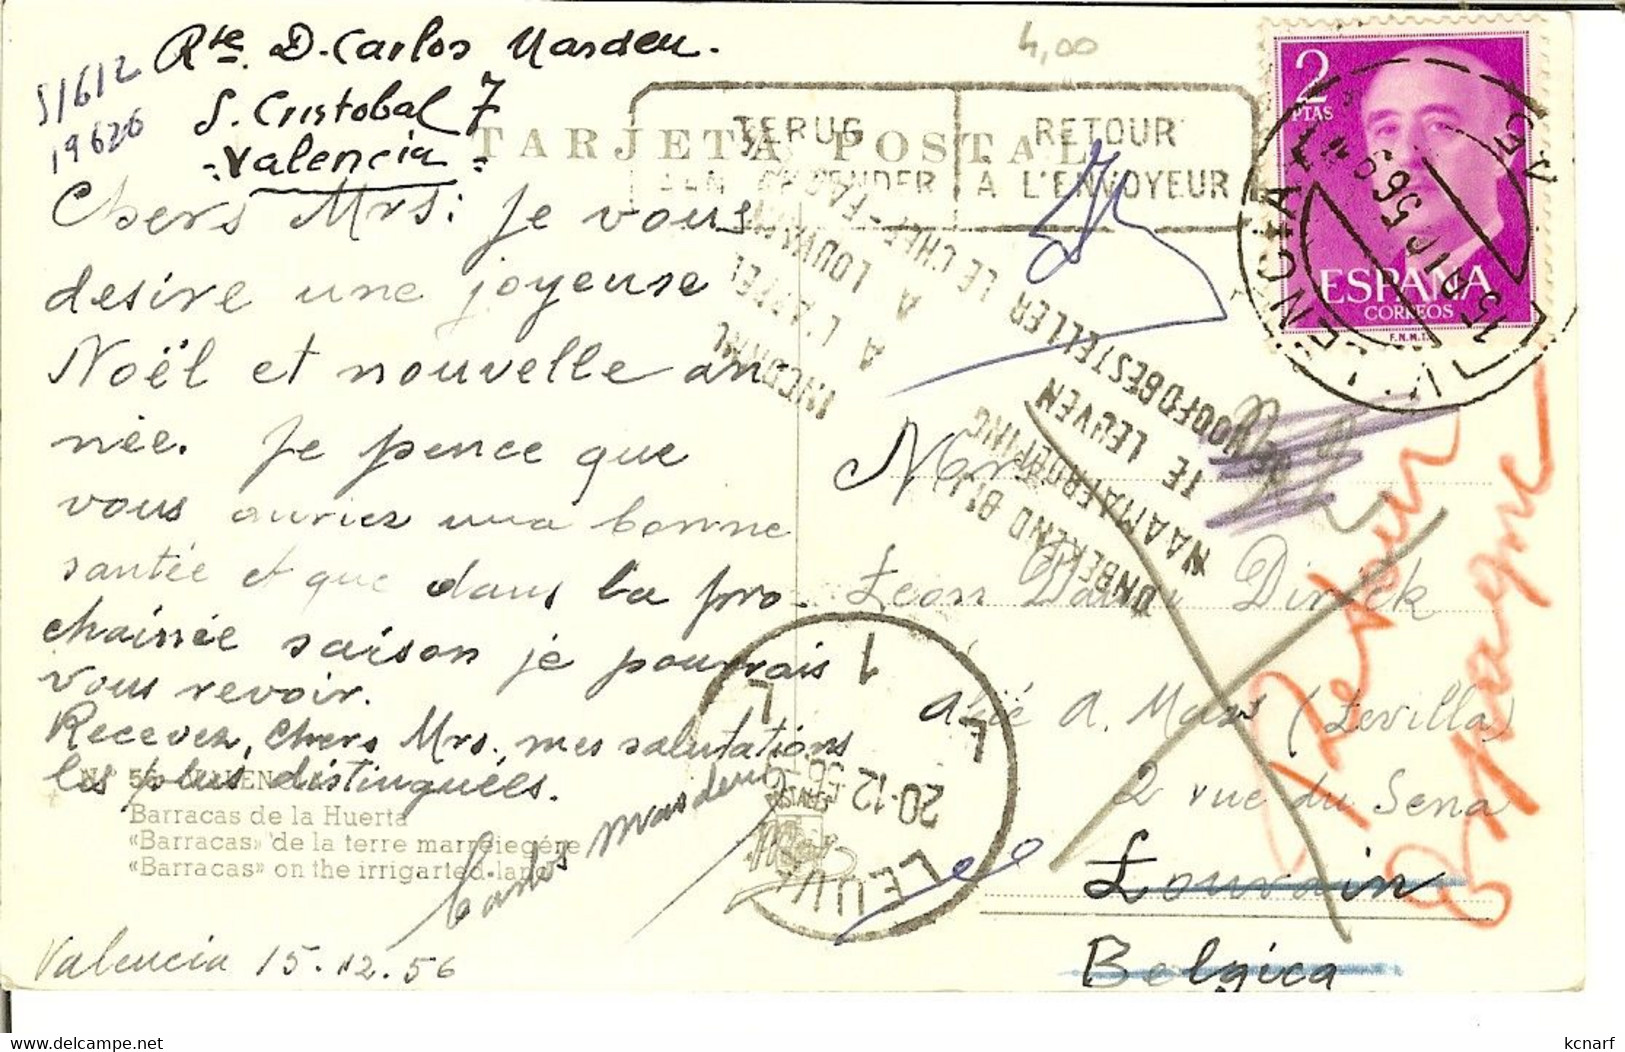 Rte. D. Carlos Masdeu.
S. Cristobal 7
-Valencia-
51612
19626
4,00
TARJETA POSTAL
TERUG
DEN AFZENDER
RETOUR
A L'ENVOYEUR
2
PTAS
ESPAÑA
CORREOS
F.N.M.T.
Chers Mrs: Je vous
desire une joyeuse
Noël et nouvelle an-
née. Je pence que
vous auriez una bonne
santée et que dans la pro-
chainée saison je pourrais
vous revoir.
Recevez, chers Mrs. mes salutations
les plus distinguées.
Carlos Masdeu
Valencia 15.12.56
Nº 56 - VALENCIA
Barracas de la Huerta
«Barracas» de la terre
«Barracas» on the irrigarted-land
INCONNU
A L'APPEL
A LOUVAIN
LE CHEF-FAC
ONBEKEND BIJ
NAAMAFROEPING
TE LEUVEN
DE HOOFDBESTELLER
Leon Dirick
A. Mass (Sevilla)
2 rue du Sena
Louvain
Belgica
Retour
Espagne
LEUVEN
20-12 56
1
L L